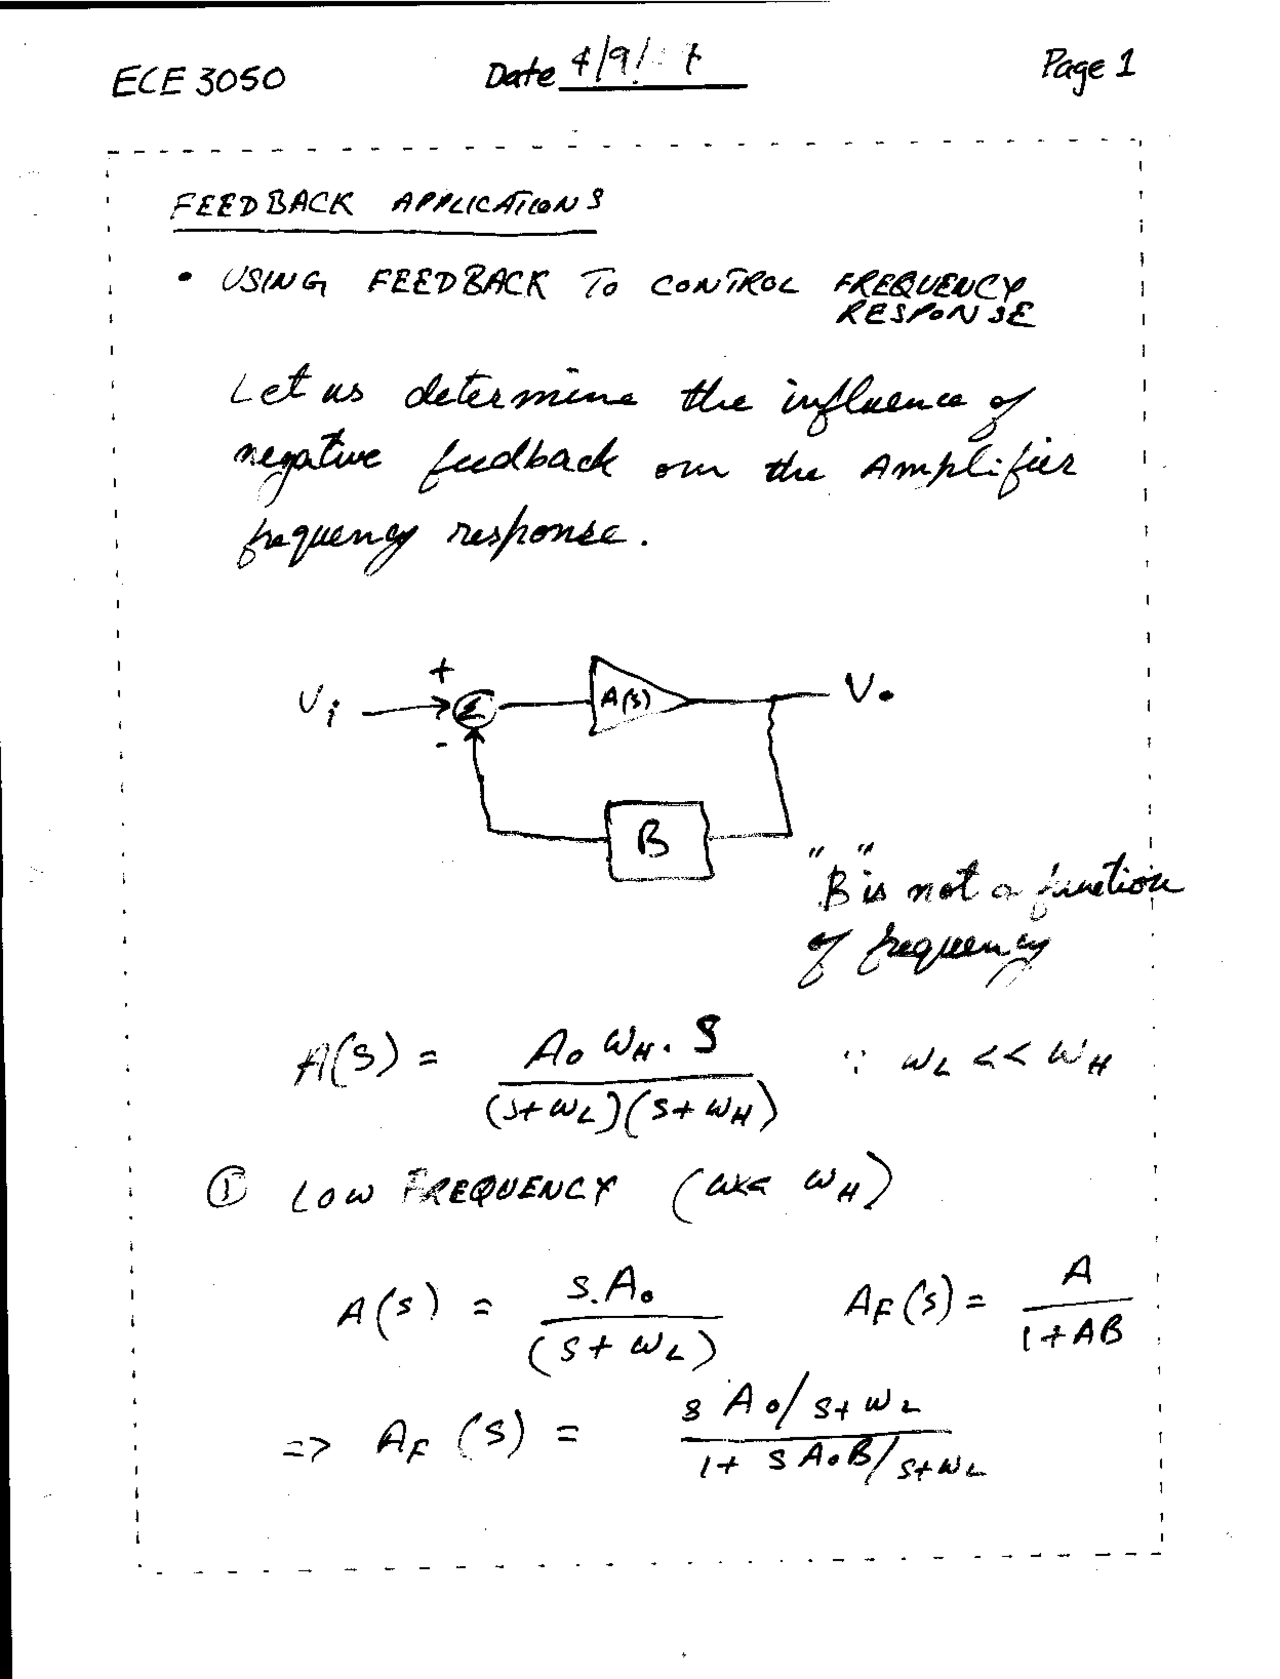 ECE 3050 Date 4/9/ Page 1
FEEDBACK APPLICATIONS
• USING FEEDBACK TO CONTROL FREQUENCY
RESPONSE
Let us determine the influence of
negative feedback on the Amplifier
frequency response.
+
Vi Σ A(s) Vo
-
B
"B" is not a function
of frequency
A(s) = Ao ωH . S / (s+ωL)(s+ωH) ∵ ωL << ωH
① LOW FREQUENCY (ω<< ωH)
A(s) = s.Ao / (s+ωL) AF(s) = A / 1+AB
=> AF(s) = s Ao/s+ωL / 1+ s AoB/s+ωL